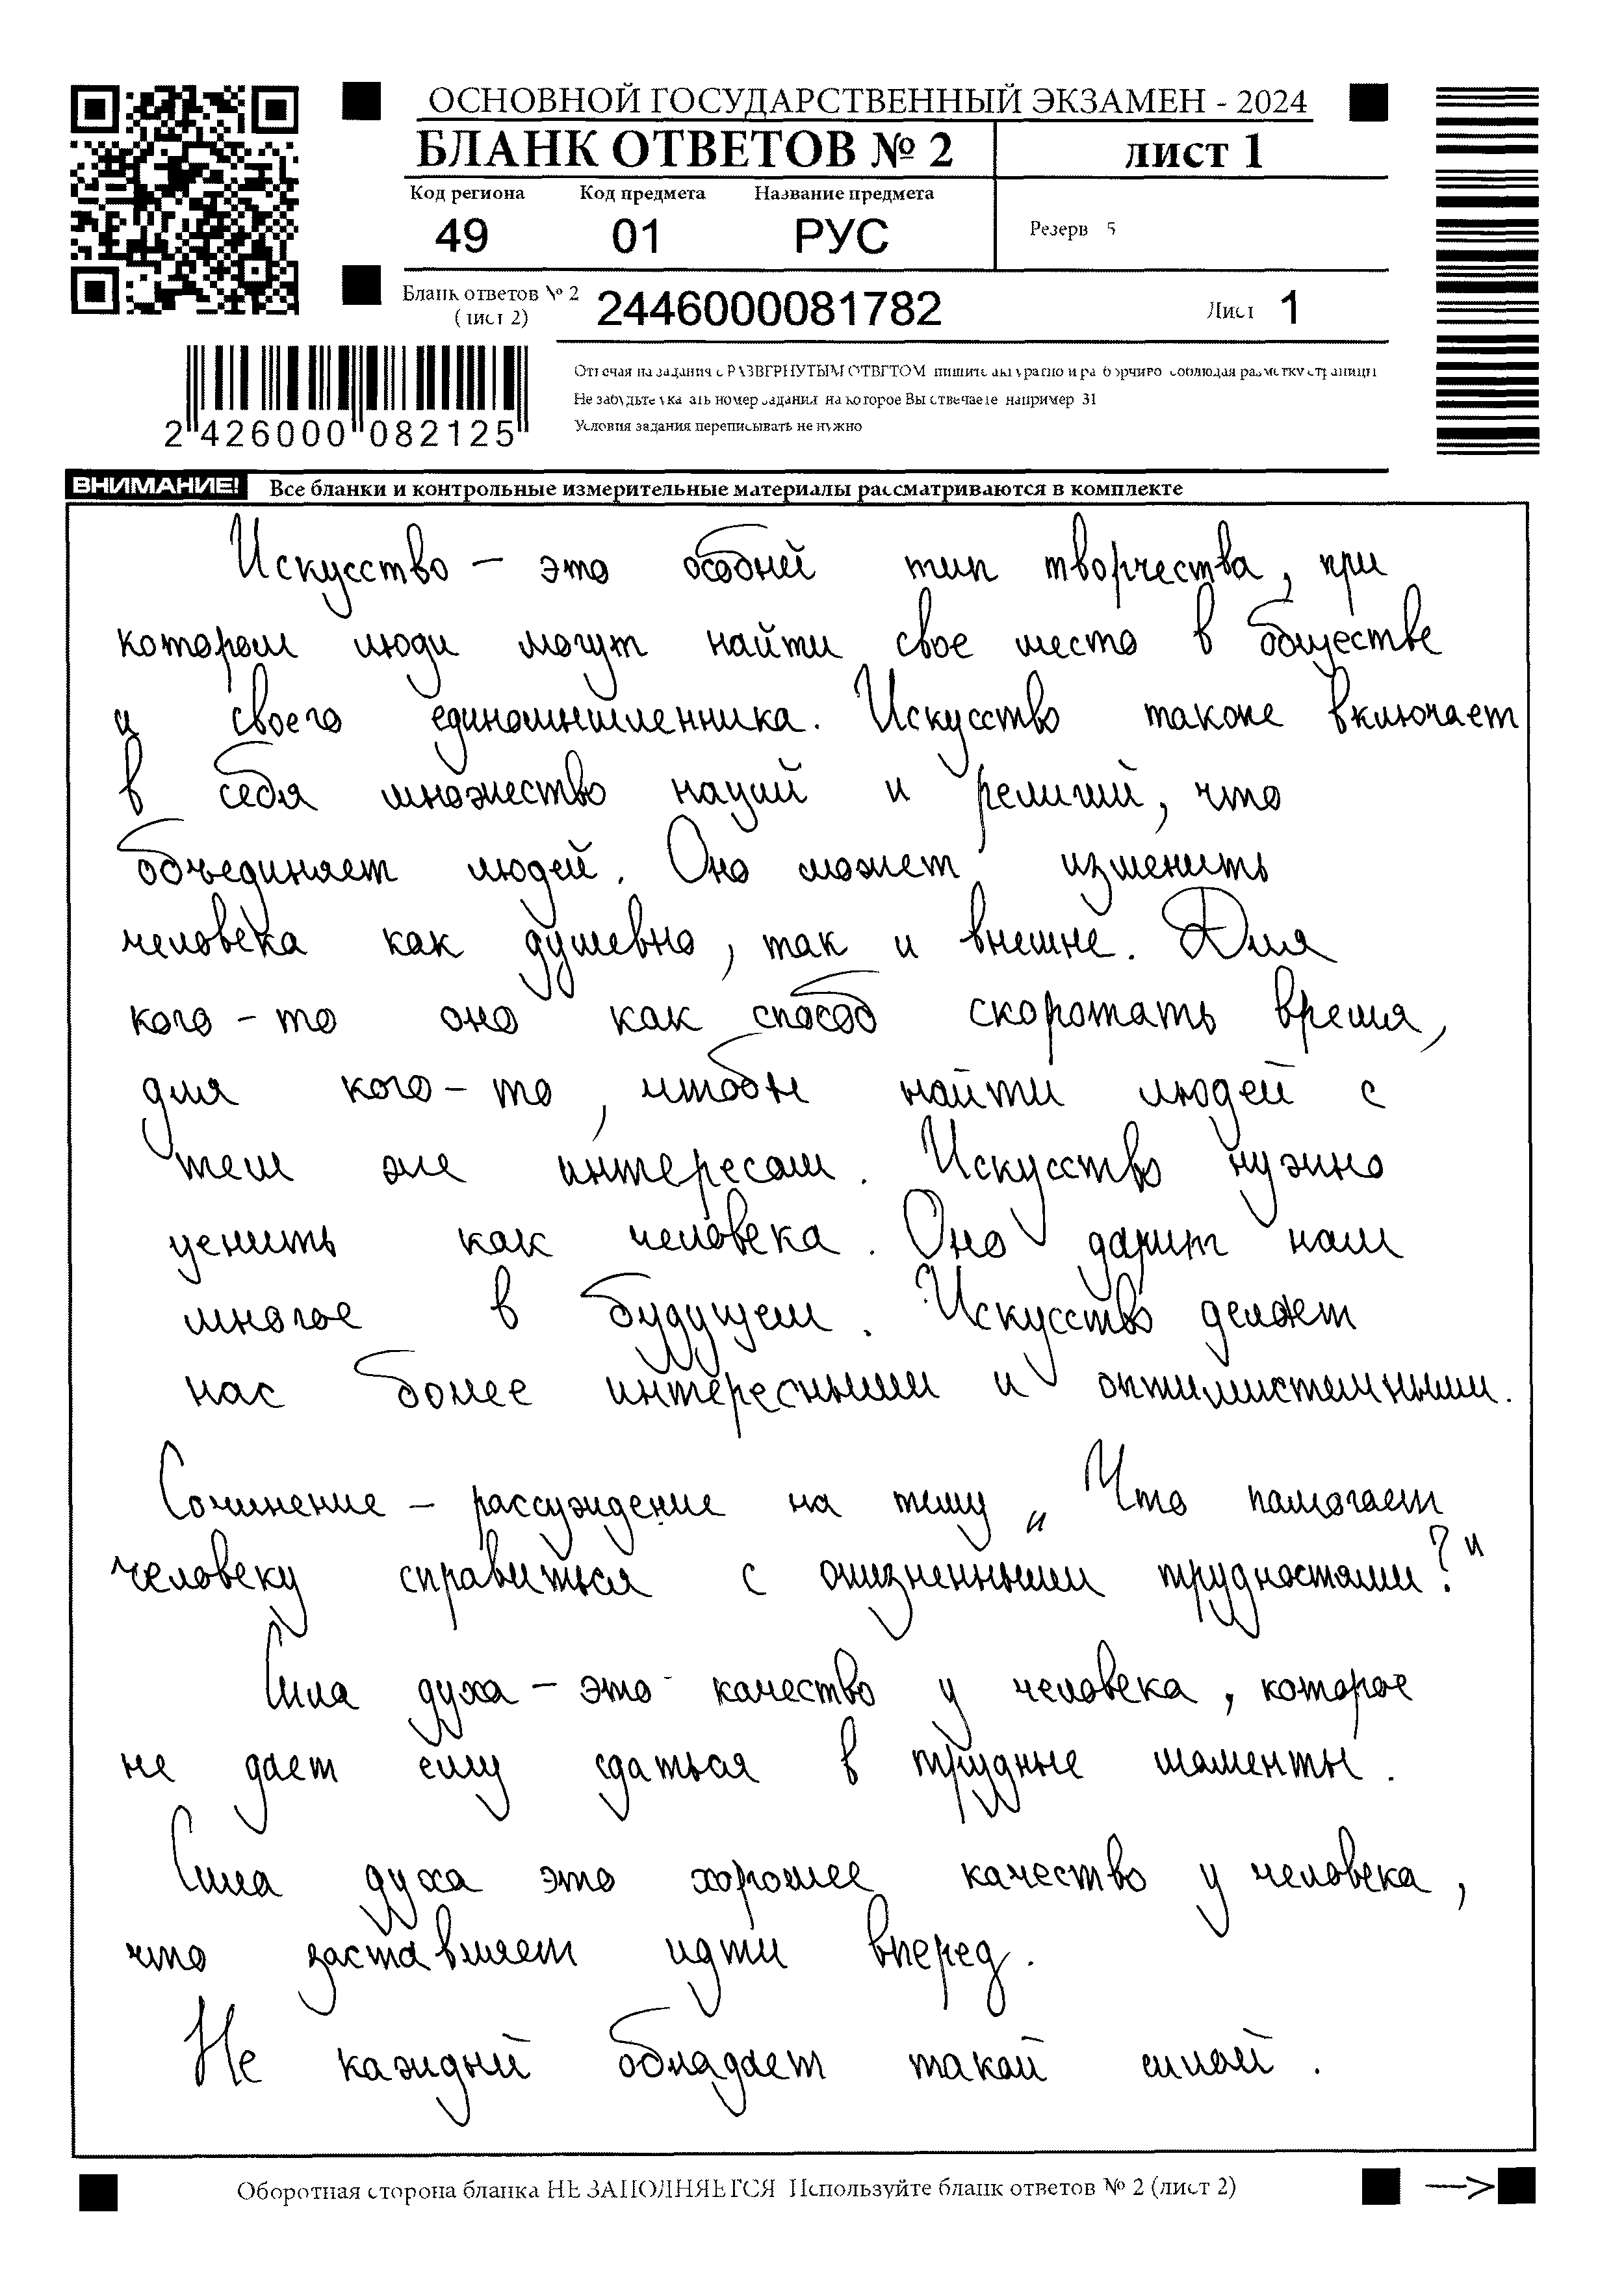 ОСНОВНОЙ ГОСУДАРСТВЕННЫЙ ЭКЗАМЕН - 2024
БЛАНК ОТВЕТОВ № 2 лист 1
Код региона Код предмета Название предмета
49 01 РУС
Резерв 5
Бланк ответов № 2
(лист 2)
2446000081782
Лист 1
2 426000 082125
Отвечая на задания с РАЗВЕРНУТЫМ ОТВЕТОМ пишите аккуратно и разборчиво соблюдая разметку страницы
Не забудьте указать номер задания на которое Вы отвечаете например 31
Условия задания переписывать не нужно
ВНИМАНИЕ! Все бланки и контрольные измерительные материалы рассматриваются в комплекте
Искусство – это особый тип творчества, при
котором люди могут найти свое место в обществе
и своего единомышленника. Искусство также включает
в себя множество наций и религий, что
объединяет людей. Оно может изменить
человека как душевно, так и внешне. Для
кого-то оно как способ скоротать время,
для кого-то, чтобы найти людей с
тем же интересом. Искусство нужно
ценить как человека. Оно дарит нам
многое в будущем. Искусство делает
нас более интересными и оптимистичными.
Сочинение – рассуждение на тему „Что помогает
человеку справиться с жизненными трудностями?"
Сила духа – это качество у человека, которое
не дает ему сдаться в трудные моменты.
Сила духа это хорошее качество у человека,
что заставляет идти вперед.
Не каждый обладает такой силой.
Оборотная сторона бланка НЕ ЗАПОЛНЯЕТСЯ Используйте бланк ответов № 2 (лист 2)